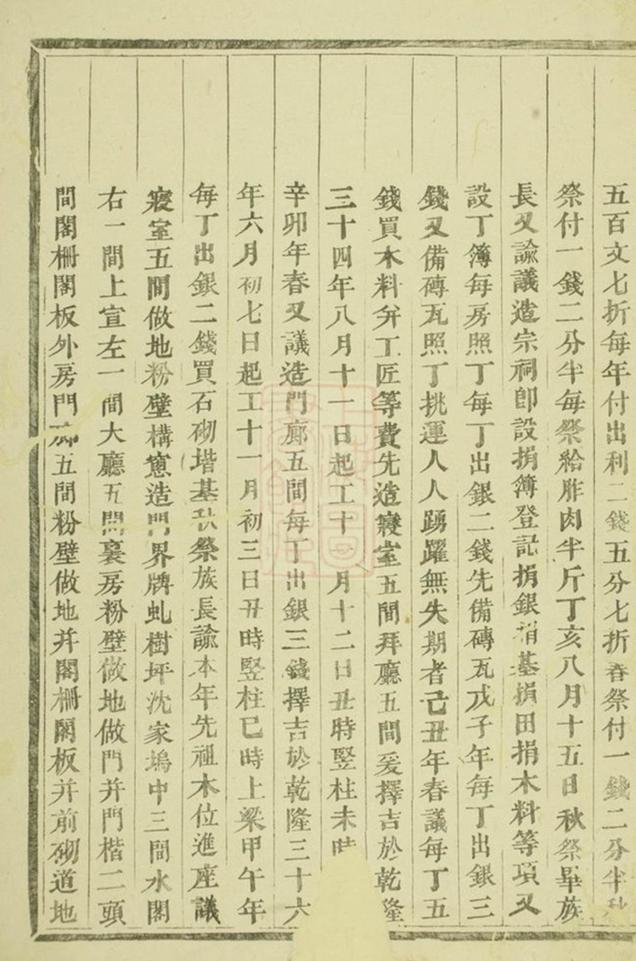 五百文七折每年付出利二錢五分七折春祭付一錢二分半秋
祭付一錢二分半每祭給胙肉半斤丁亥八月十五日秋祭畢族
長又諭議造宗祠卽設捐簿登記捐銀捐基捐田捐木料等項又
設丁簿每房照丁每丁出銀二錢先備磚瓦戊子年每丁出銀三
錢又備磚瓦照丁挑運人人踴躍無失期者己丑年春議每丁五
錢買木料弁工匠等費先造寢室五間拜廳五間爰擇吉於乾隆
三十四年八月十一日起工十 月十二日丑時竪柱未時
辛卯年春又議造門廊五間每丁出銀三錢擇吉於乾隆三十六
年六月初七日起工十一月初三日丑時竪柱巳時上梁甲午年
每丁出銀二錢買石砌堦基秋祭族長諭本年先祖木位進座議
寢室五間做地粉壁構窻造門界牌虬樹坪沈家塢中三間水閣
右一間上宣左一間大廳五間裏房粉壁做地做門并門楷二頭
間閣柵閣板外房門廊五間粉壁做地并閣柵閣板并前砌道地